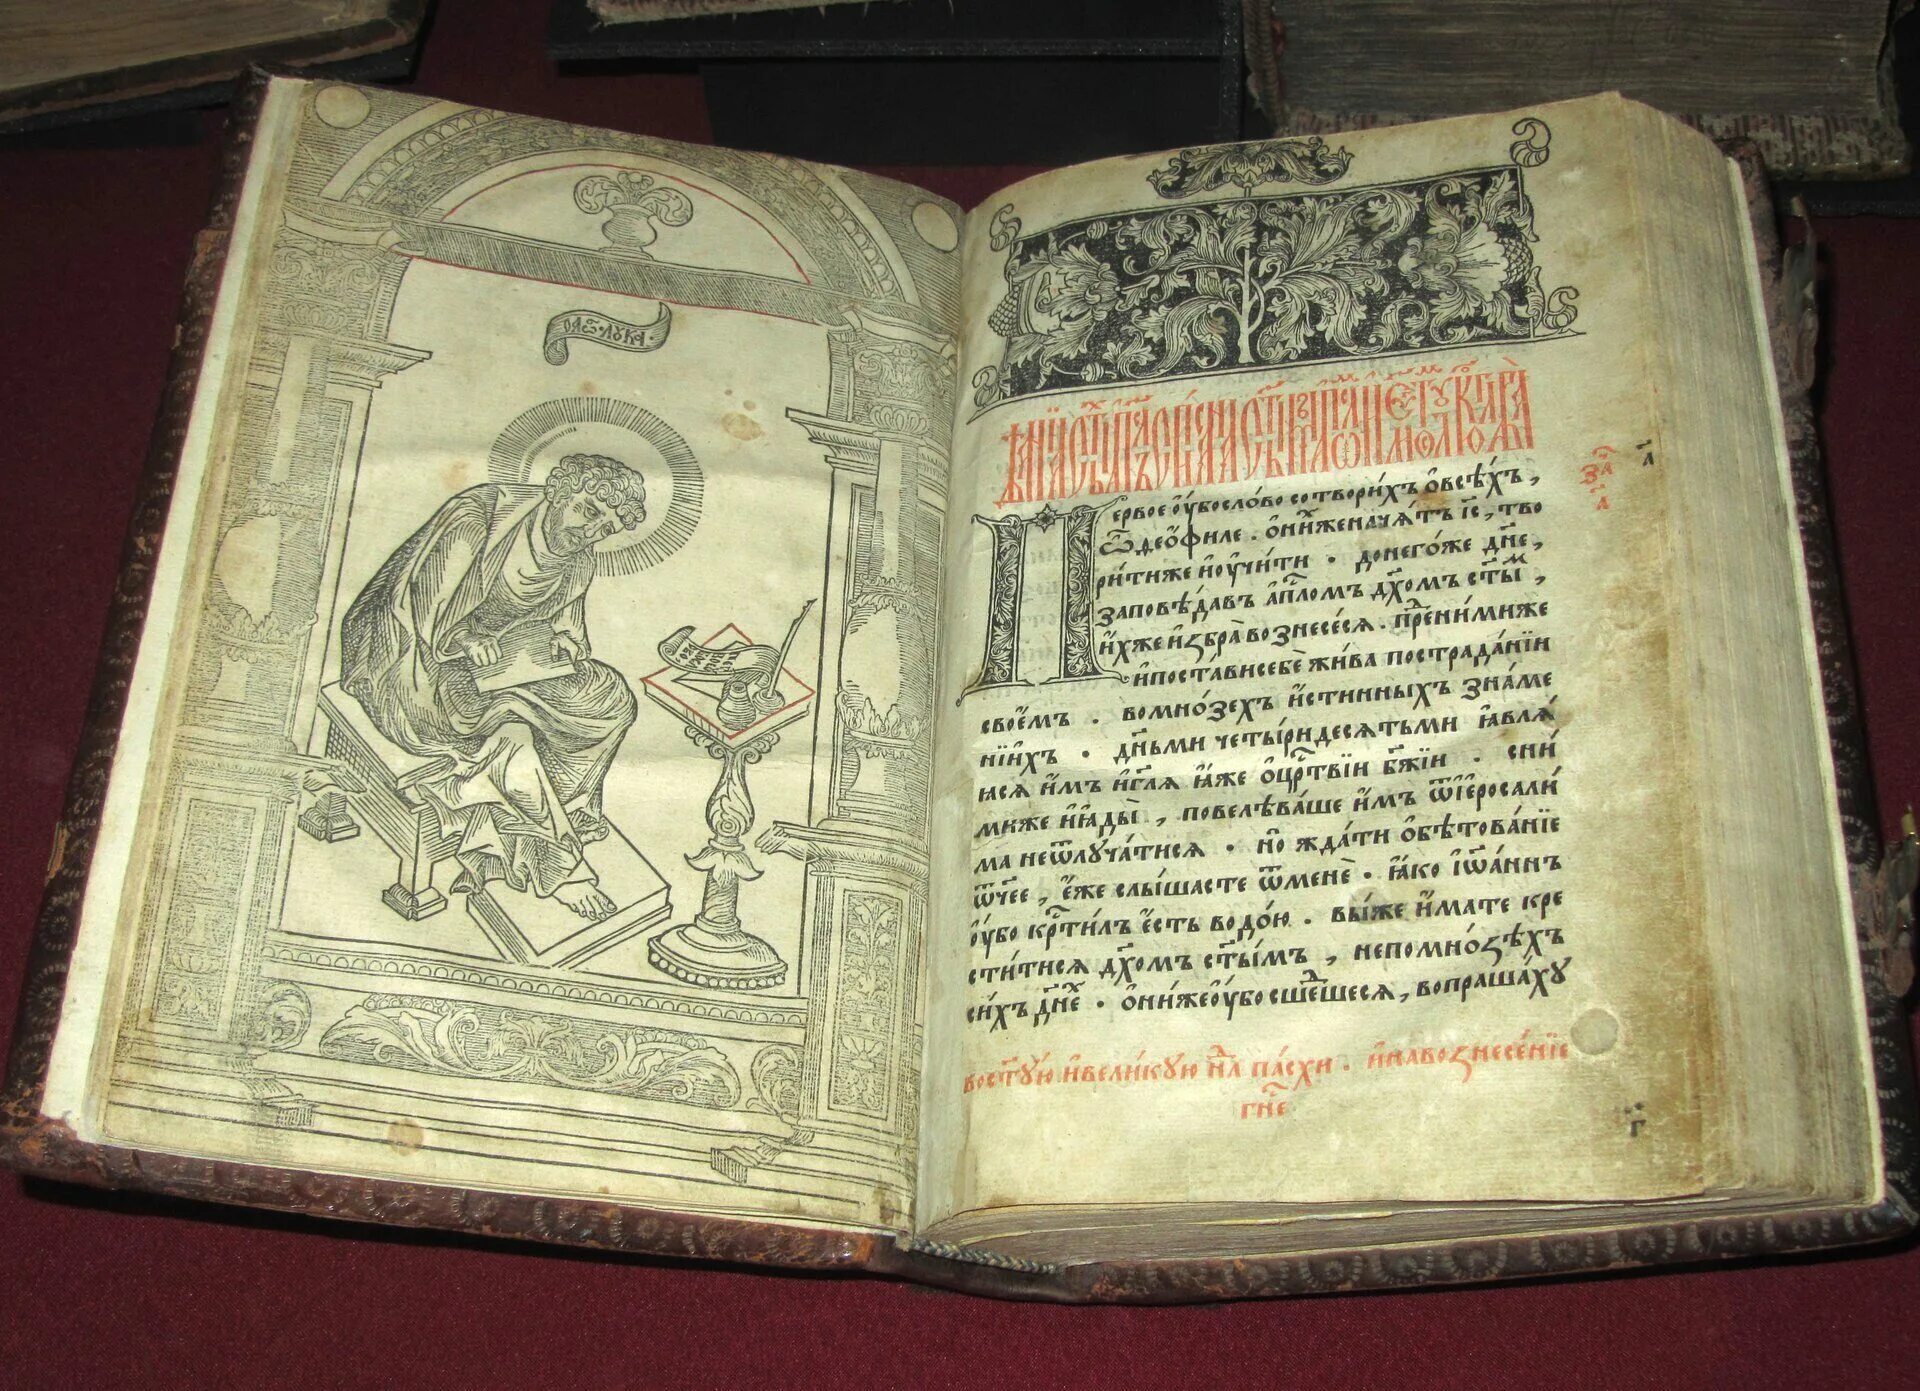 ЛꙊКА
Первое ᲂу҆́бо сло́во сотвори́хъ ѻ҆ всѣ́хъ,
ѽ де́ѻфиле. ѻ҆ ни́хже начѧ́тъ і҆с҃, тво
ри́тиже и҆ ᲂу҆чи́ти. донего́же дн҃е,
заповѣ́давъ а҆пⷭ҇ломъ дх҃омъ ст҃ыⷨ,
и҆́хже и҆збра̀ вознесе́сѧ. преⷣни́миже
и҆ поста́ви себѐ жи́ва по страда́нїи
свое́мъ. во мно́зехъ и҆́стинныхъ зна́ме
нїи҆хъ. дн҃ьми четы́ридесѧтьми ꙗ҆влѧ́
ꙗсѧ и҆̀мъ и҆ гл҃ѧ ꙗ҆́же ѻ҆ црⷭ҇твїи бж҃їи. сни́
миже и҆ ꙗ҆ды̀, повелѣва́ше и҆̀мъ ѿ і҆ероса́ли
ма неѿлꙋча́тисѧ. но жда́ти ѻ҆бѣтова́нїе
ѿч҃ее, є҆́же слы́шасте ѿ менѐ. ꙗ҆́ко і҆ѡ́аннъ
ᲂу҆́бо крⷭ҇ти́лъ є҆́сть водо́ю. вы́же и҆́мате кре
сти́тисѧ дх҃омъ ст҃ы́мъ, не по мно́зѣхъ
си́хъ дн҃е́хъ. ѻ҆ни́же ᲂу҆́бо сше́дшесѧ, вопраша́хꙋ
во ст҃ꙋ́ю и҆ вели́кꙋю нⷣлю па́схи. и҆ на вознесе́нїе
гн҃е
за҃
л
а҃
г҃